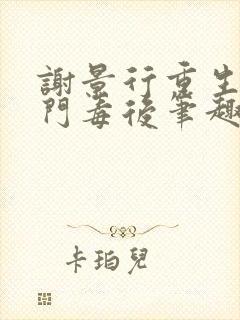 謝景行重生
門毒後筆趣
卡珀兒